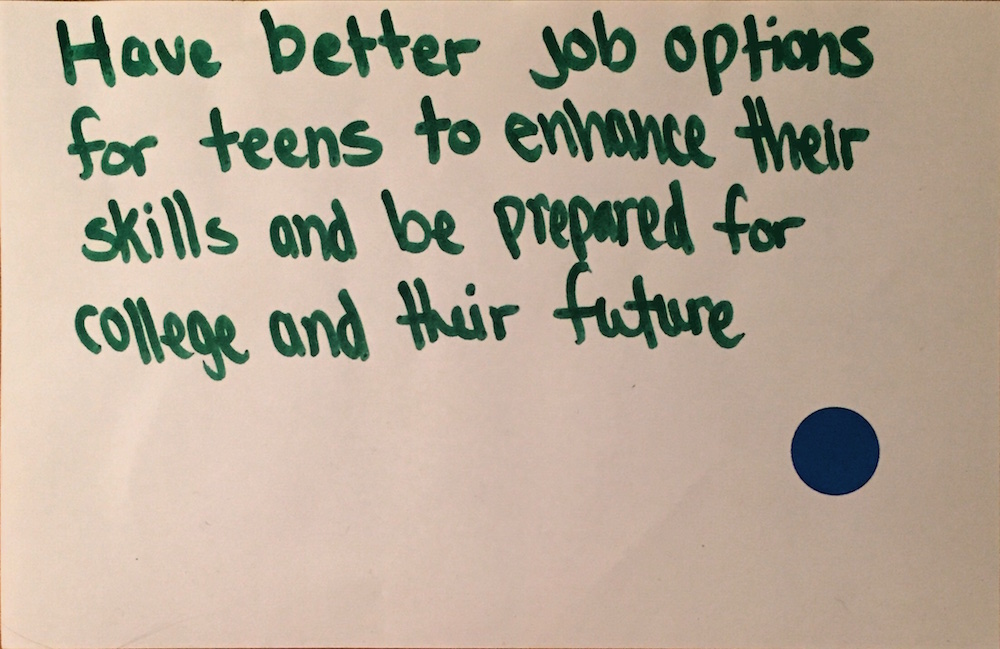 Have better job options
for teens to enhance their
skills and be prepared for
college and their future